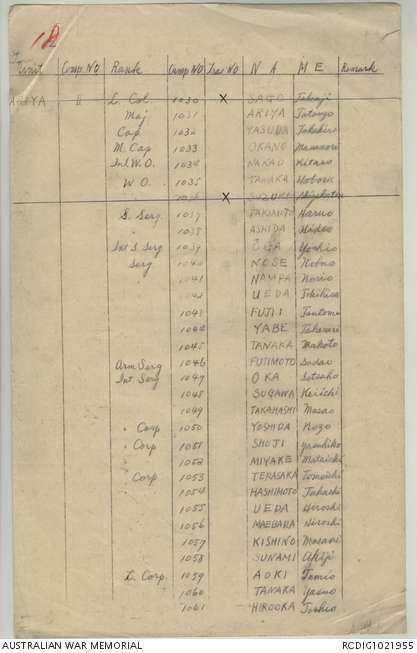 Unit Camp NO Rank Camp NO Trac NO N A M E Remark
AKIYA II L. Col 1030 X SAGO Tokuji
Maj. 1031 AKIYA Tatsugo
Cap 1032 YASUDA Takehiro
M. Cap 1033 OKANO Masanori
Int W.O. 1034 NAKAO Kitaro
W.O. 1035 TANAKA Noboru
X SUZUKI
S. Serg 1037 Haruo
" 1038 ASHIDA Hideo
Int S Serg 1039 OGA Yoshio
Serg 1040 NOSE Nobuo
1041 NAMBA Norio
1042 UEDA Tokihisa
1043 FUJII Tsutomu
1044 YABE Takanari
1045 TANAKA Makoto
Arm Serg 1046 FUJIMOTO Sadao
Int Serg 1047 OKA Setsuho
1048 SUGAWA Keiichi
1049 TAKAHASHI Masao
" Corp 1050 YOSHIDA Kozo
" Corp 1051 SHOJI Yasuhiko
1052 MIYAKE Mataichi
Corp 1053 TERASAKA Tomoichi
1054 HASHIMOTO Takashi
1055 UEDA Hiroshi
1056 MAEBARA Hiroshi
1057 KISHINO Masami
1058 SUNAMI Akeji
L. Corp. 1059 AOKI Tamio
1060 TANAKA Yasuo
1061 HIROOKA Toshio
AUSTRALIAN WAR MEMORIAL RCDIG1021955